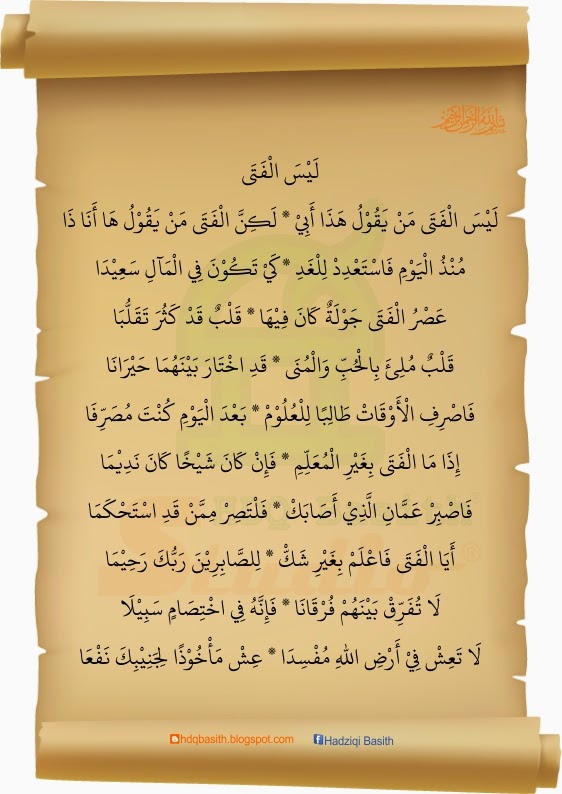 بسم الله الرحمن الرحيم
لَيْسَ الْفَتَى
لَيْسَ الْفَتَى مَنْ يَقُوْلُ هَذَا أَبِيْ * لَكِنَّ الْفَتَى مَنْ يَقُوْلُ هَا أَنَا ذَا
مُنْذُ الْيَوْمِ فَاسْتَعْدِدْ لِلْغَدِ * كَيْ تَكُوْنَ فِي الْمَآلِ سَعِيْدَا
عَصْرُ الْفَتَى جَوْلَةٌ كَانَ فِيْهَا * قَلْبٌ قَدْ كَثُرَ تَقَلُّبَا
قَلْبٌ مُلِئَ بِالْحُبِّ وَالْمُنَى * قَدِ اخْتَارَ بَيْنَهُمَا حَيْرَانَا
فَاصْرِفِ الْأَوْقَاتْ طَالِبًا لِلْعُلُوْمْ * بَعْدَ الْيَوْمِ كُنْتَ مُصَرِّفَا
إِذَا مَا الْفَتَى بِغَيْرِ الْمُعَلِّمِ * فَإِنْ كَانَ شَيْخًا كَانَ نَدِيْمَا
فَاصْبِرْ عَمَّانِ الَّذِيْ أَصَابَكْ * فَلْتَصِرْ مِمَّنْ قَدِ اسْتَحْكَمَا
أَيَا الْفَتَى فَاعْلَمْ بِغَيْرِ شَكّْ * لِلصَّابِرِيْنَ رَبُّكَ رَحِيْمَا
لَا تُفَرِّقْ بَيْنَهُمْ فُرْقَانَا * فَإِنَّهُ فِي اخْتِصَامٍ سَبِيْلَا
لَا تَعِشْ فِيْ أَرْضِ اللهِ مُفْسِدَا * عِشْ مَأْخُوْذًا لِجَنِيْبِكَ نَفْعَا
hdqbasith.blogspot.com Hadziqi Basith